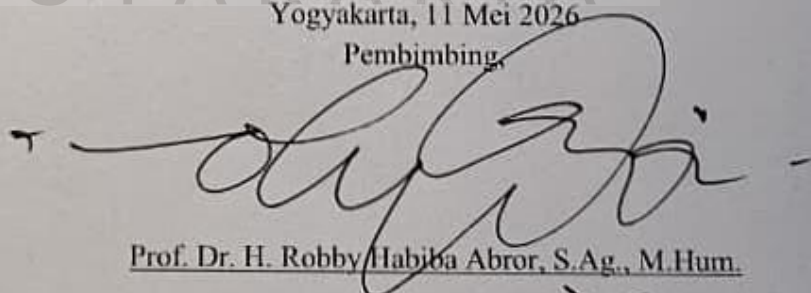 Yogyakarta, 11 Mei 2026
Pembimbing,
Prof. Dr. H. Robby Habiba Abror, S.Ag., M.Hum.